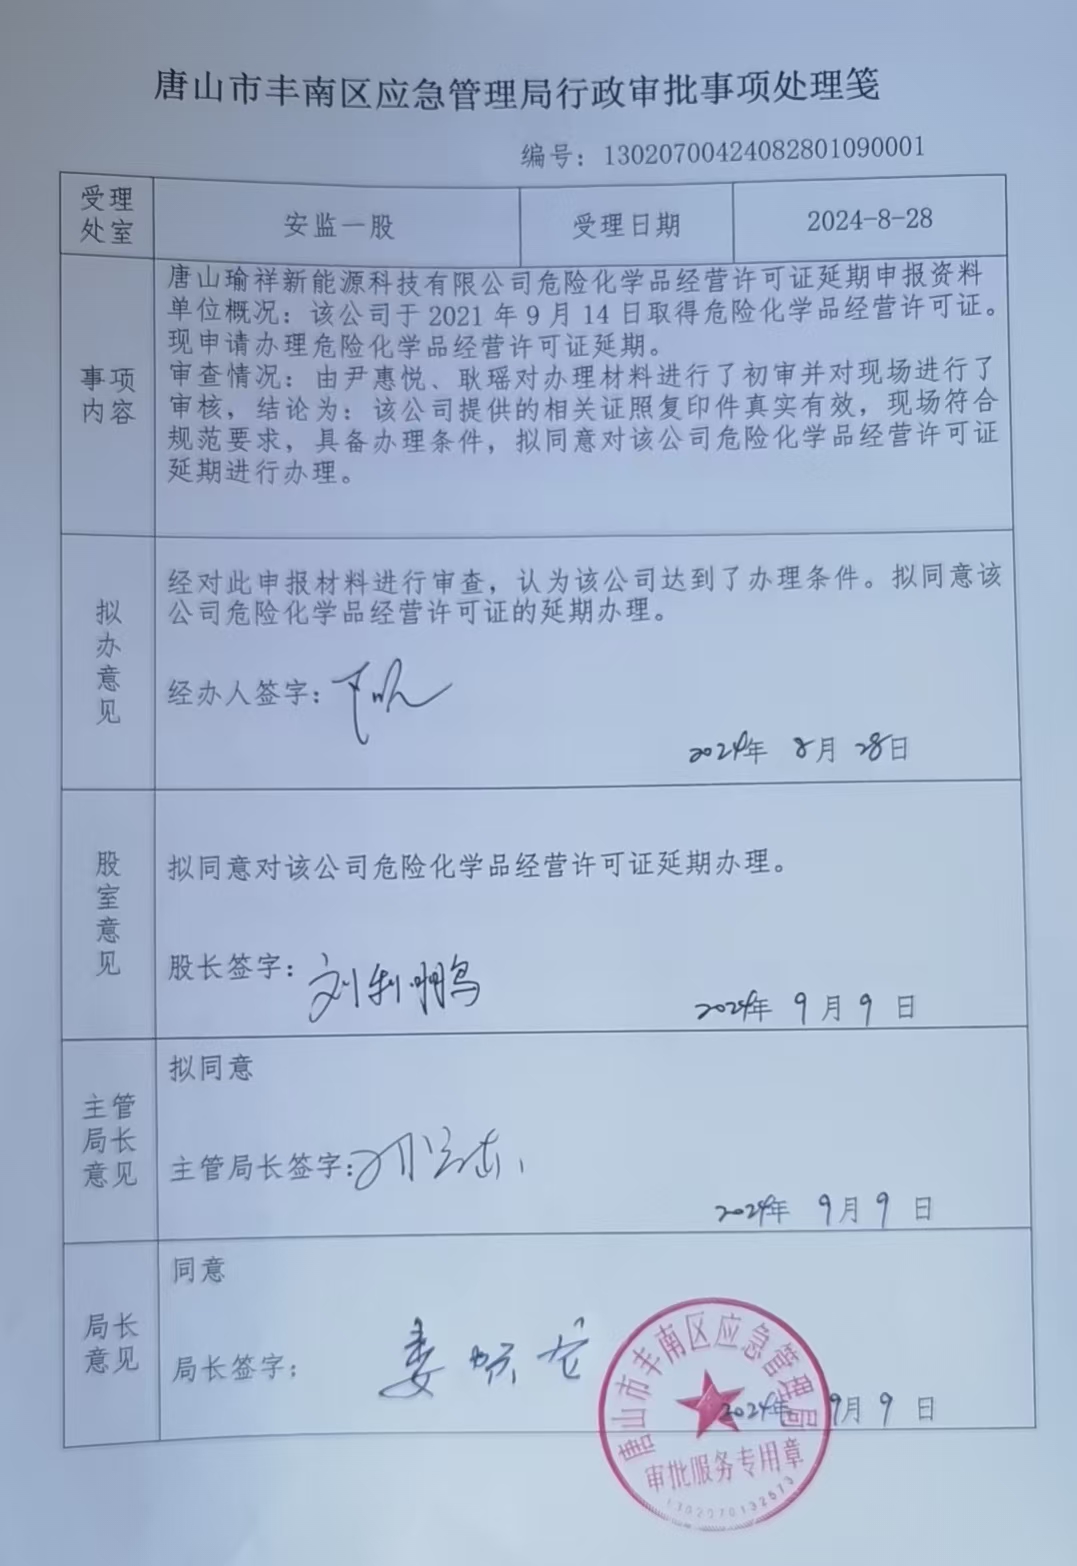 唐山市丰南区应急管理局行政审批事项处理笺
编号：13020700424082801090001
受理处室
安监一股
受理日期
2024-8-28
事项内容
唐山瑜祥新能源科技有限公司危险化学品经营许可证延期申报资料
单位概况：该公司于 2021 年 9 月 14 日取得危险化学品经营许可证。
现申请办理危险化学品经营许可证延期。
审查情况：由尹惠悦、耿瑶对办理材料进行了初审并对现场进行了
审核，结论为：该公司提供的相关证照复印件真实有效，现场符合
规范要求，具备办理条件，拟同意对该公司危险化学品经营许可证
延期进行办理。
拟办意见
经对此申报材料进行审查，认为该公司达到了办理条件。拟同意该
公司危险化学品经营许可证的延期办理。
经办人签字：
2024年 8月 28日
股室意见
拟同意对该公司危险化学品经营许可证延期办理。
股长签字：刘利鹏
2024年 9月 9日
主管局长意见
拟同意
主管局长签字：
2024年 9月 9日
局长意见
同意
局长签字；
2024年 9月 9日
唐山市丰南区应急管理局
审批服务专用章